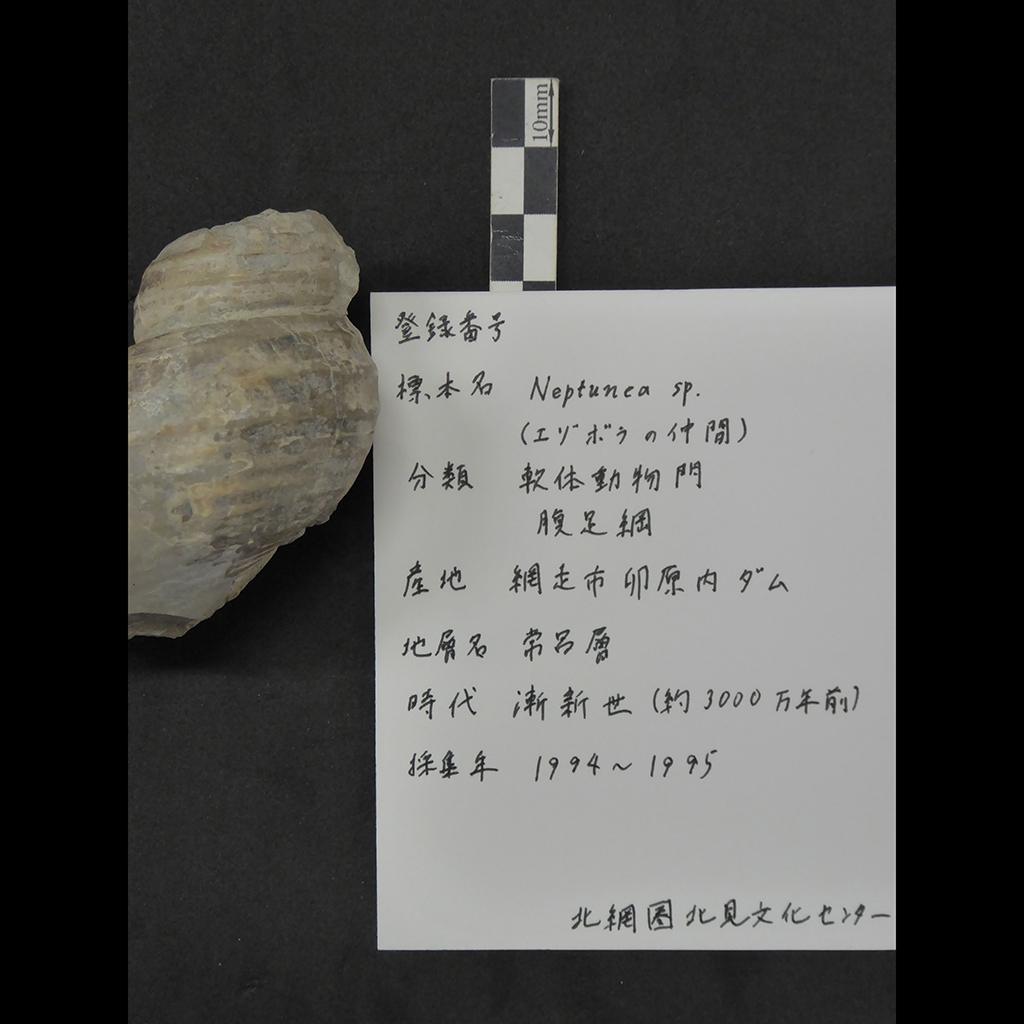 10mm
登録番号
標本名 Neptunea sp.
(エゾボラの仲間)
分類 軟体動物門
腹足綱
産地 網走市卯原内ダム
地層名 常呂層
時代 漸新世(約3000万年前)
採集年 1994~1995
北網圏北見文化センター